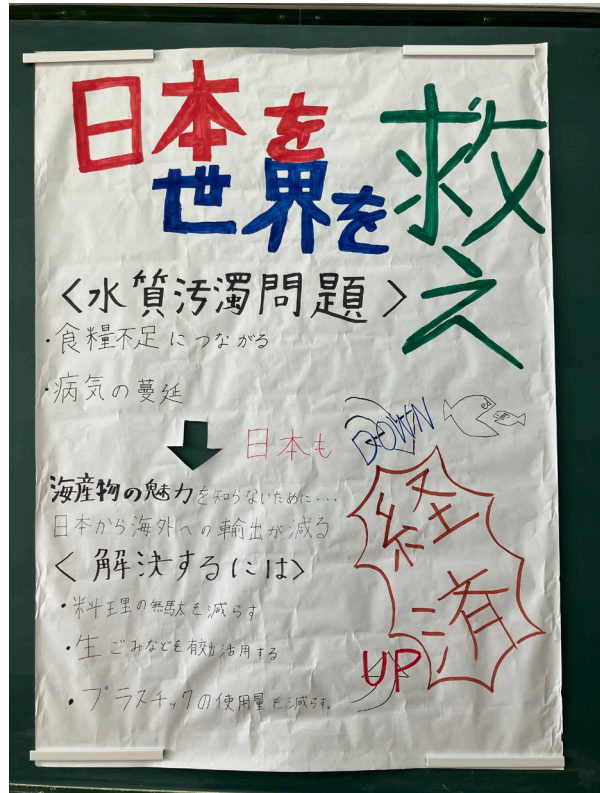 日本を
世界を
救え
<水質汚濁問題>
・食糧不足につながる
・病気の蔓延
日本も
DOWN
海産物の魅力を知らないために・・・
日本から海外への輸出が減る
経済
<解決するには>
・料理の無駄を減らす
・生ごみなどを有効活用する
UP
・プラスチックの使用量を減らす。